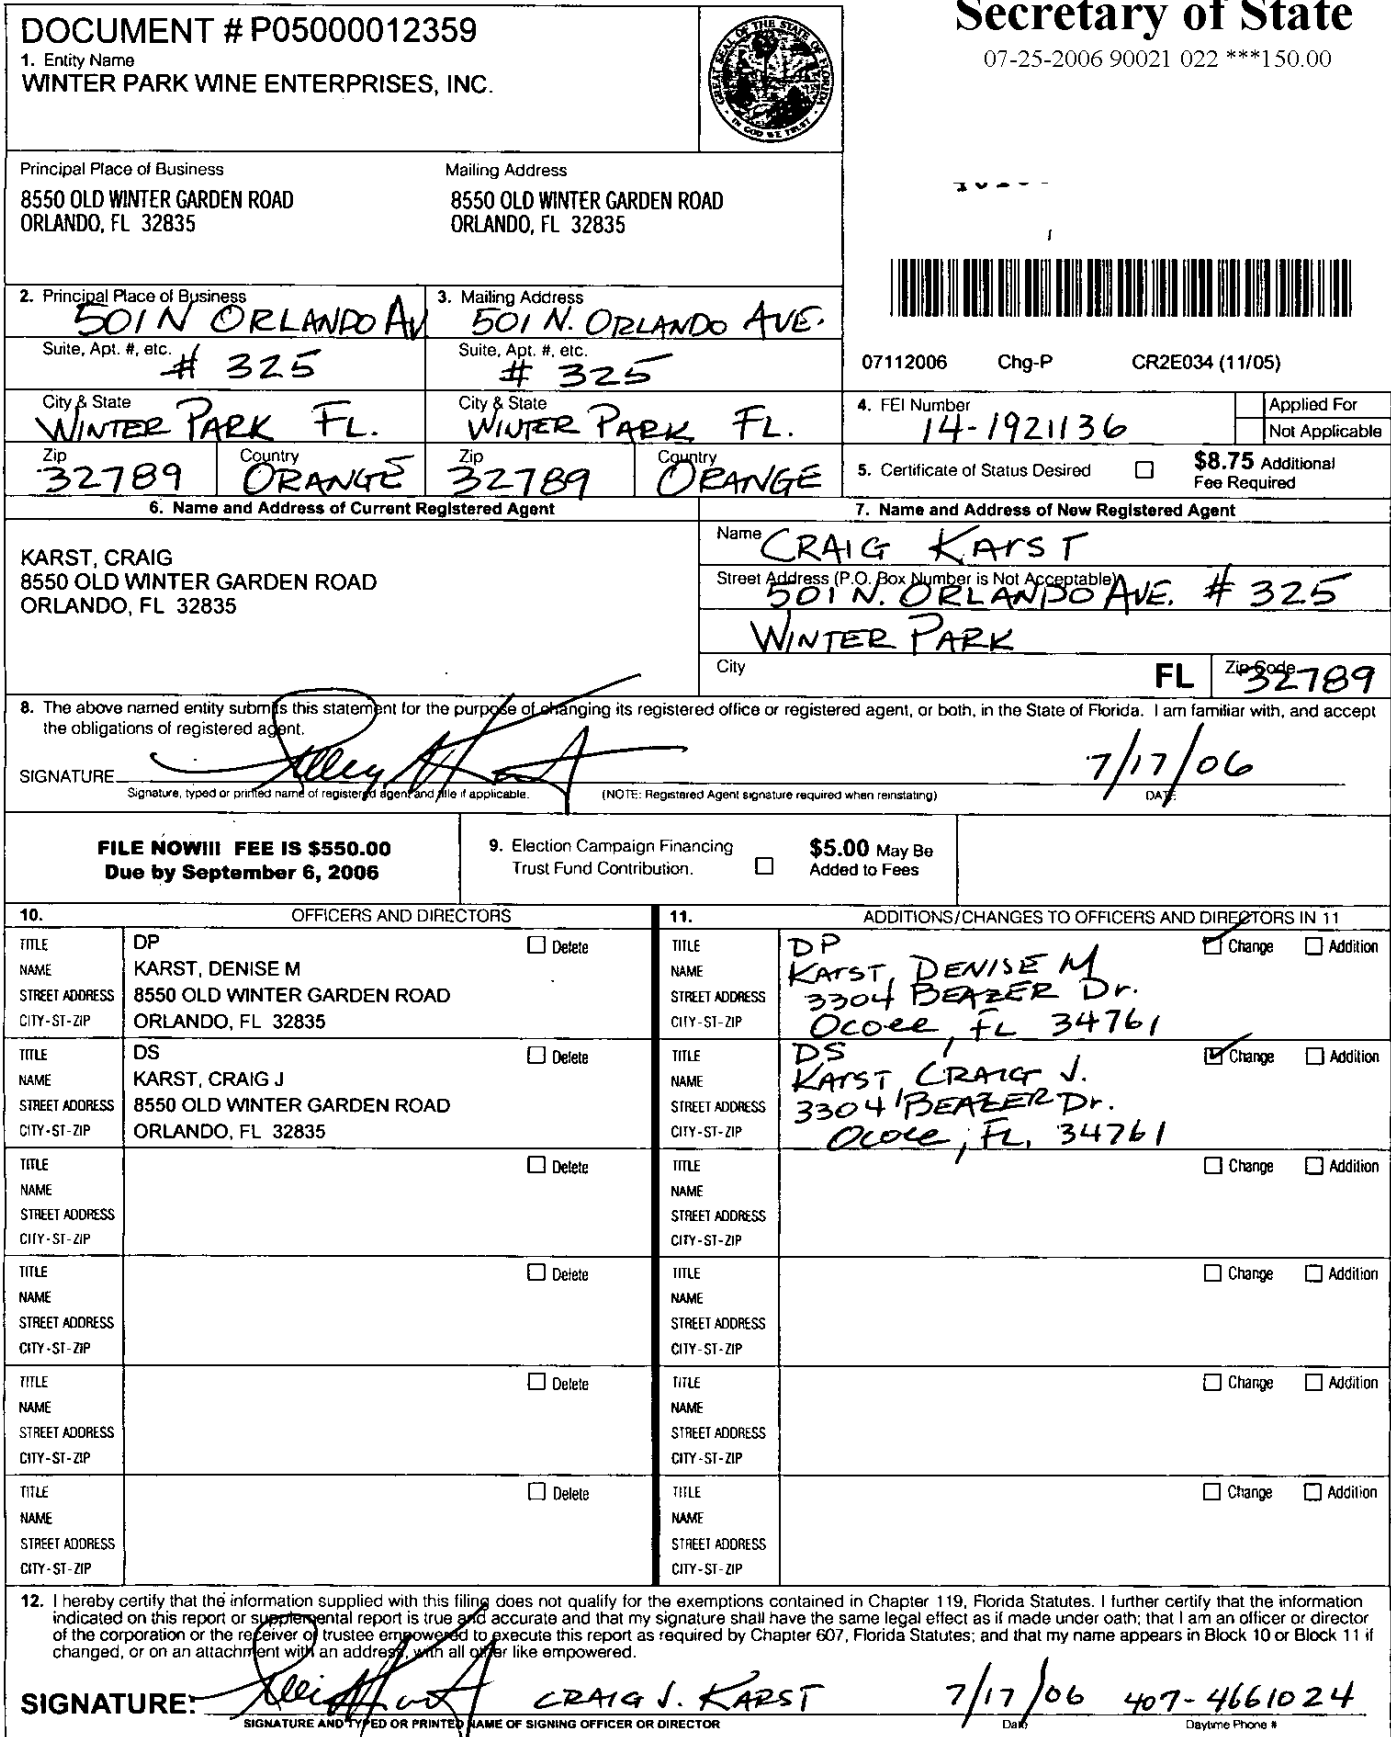 Secretary of State
07-25-2006 90021 022 ***150.00
DOCUMENT # P05000012359
1. Entity Name
WINTER PARK WINE ENTERPRISES, INC.
GREAT SEAL OF THE STATE OF FLORIDA
IN GOD WE TRUST
Principal Place of Business
8550 OLD WINTER GARDEN ROAD
ORLANDO, FL 32835
Mailing Address
8550 OLD WINTER GARDEN ROAD
ORLANDO, FL 32835
2. Principal Place of Business
501 N ORLANDO AV
3. Mailing Address
501 N. ORLANDO AVE.
Suite, Apt. #, etc.
# 325
Suite, Apt. #, etc.
# 325
City & State
WINTER PARK FL.
City & State
WINTER PARK FL.
Zip
32789
Country
ORANGE
Zip
32789
Country
ORANGE
07112006 Chg-P CR2E034 (11/05)
4. FEI Number
14-1921136
Applied For
Not Applicable
5. Certificate of Status Desired
$8.75 Additional
Fee Required
6. Name and Address of Current Registered Agent
KARST, CRAIG
8550 OLD WINTER GARDEN ROAD
ORLANDO, FL 32835
7. Name and Address of New Registered Agent
Name CRAIG KArST
Street Address (P.O. Box Number is Not Acceptable)
501 N. ORLANDO AVE. # 325
WINTER PARK
City FL Zip Code 32789
8. The above named entity submits this statement for the purpose of changing its registered office or registered agent, or both, in the State of Florida. I am familiar with, and accept
the obligations of registered agent.
SIGNATURE 7/17/06
Signature, typed or printed name of registered agent and title if applicable. (NOTE: Registered Agent signature required when reinstating) DATE
FILE NOW!!! FEE IS $550.00
Due by September 6, 2006
9. Election Campaign Financing
Trust Fund Contribution.
$5.00 May Be
Added to Fees
10. OFFICERS AND DIRECTORS
TITLE DP Delete
NAME KARST, DENISE M
STREET ADDRESS 8550 OLD WINTER GARDEN ROAD
CITY-ST-ZIP ORLANDO, FL 32835
TITLE DS Delete
NAME KARST, CRAIG J
STREET ADDRESS 8550 OLD WINTER GARDEN ROAD
CITY-ST-ZIP ORLANDO, FL 32835
TITLE Delete
NAME
STREET ADDRESS
CITY-ST-ZIP
TITLE Delete
NAME
STREET ADDRESS
CITY-ST-ZIP
TITLE Delete
NAME
STREET ADDRESS
CITY-ST-ZIP
TITLE Delete
NAME
STREET ADDRESS
CITY-ST-ZIP
11. ADDITIONS/CHANGES TO OFFICERS AND DIRECTORS IN 11
TITLE DP Change Addition
NAME KArST, DENISE M
STREET ADDRESS 3304 BEAZER Dr.
CITY-ST-ZIP Ocoee, FL 34761
TITLE DS Change Addition
NAME KArST, CRAIG J.
STREET ADDRESS 3304 BEAZER Dr.
CITY-ST-ZIP Ocoee, FL, 34761
TITLE Change Addition
NAME
STREET ADDRESS
CITY-ST-ZIP
TITLE Change Addition
NAME
STREET ADDRESS
CITY-ST-ZIP
TITLE Change Addition
NAME
STREET ADDRESS
CITY-ST-ZIP
TITLE Change Addition
NAME
STREET ADDRESS
CITY-ST-ZIP
12. I hereby certify that the information supplied with this filing does not qualify for the exemptions contained in Chapter 119, Florida Statutes. I further certify that the information
indicated on this report or supplemental report is true and accurate and that my signature shall have the same legal effect as if made under oath; that I am an officer or director
of the corporation or the receiver or trustee empowered to execute this report as required by Chapter 607, Florida Statutes; and that my name appears in Block 10 or Block 11 if
changed, or on an attachment with an address, with all other like empowered.
SIGNATURE: CRAIG J. KARST 7/17/06 407-4661024
SIGNATURE AND TYPED OR PRINTED NAME OF SIGNING OFFICER OR DIRECTOR Date Daytime Phone #